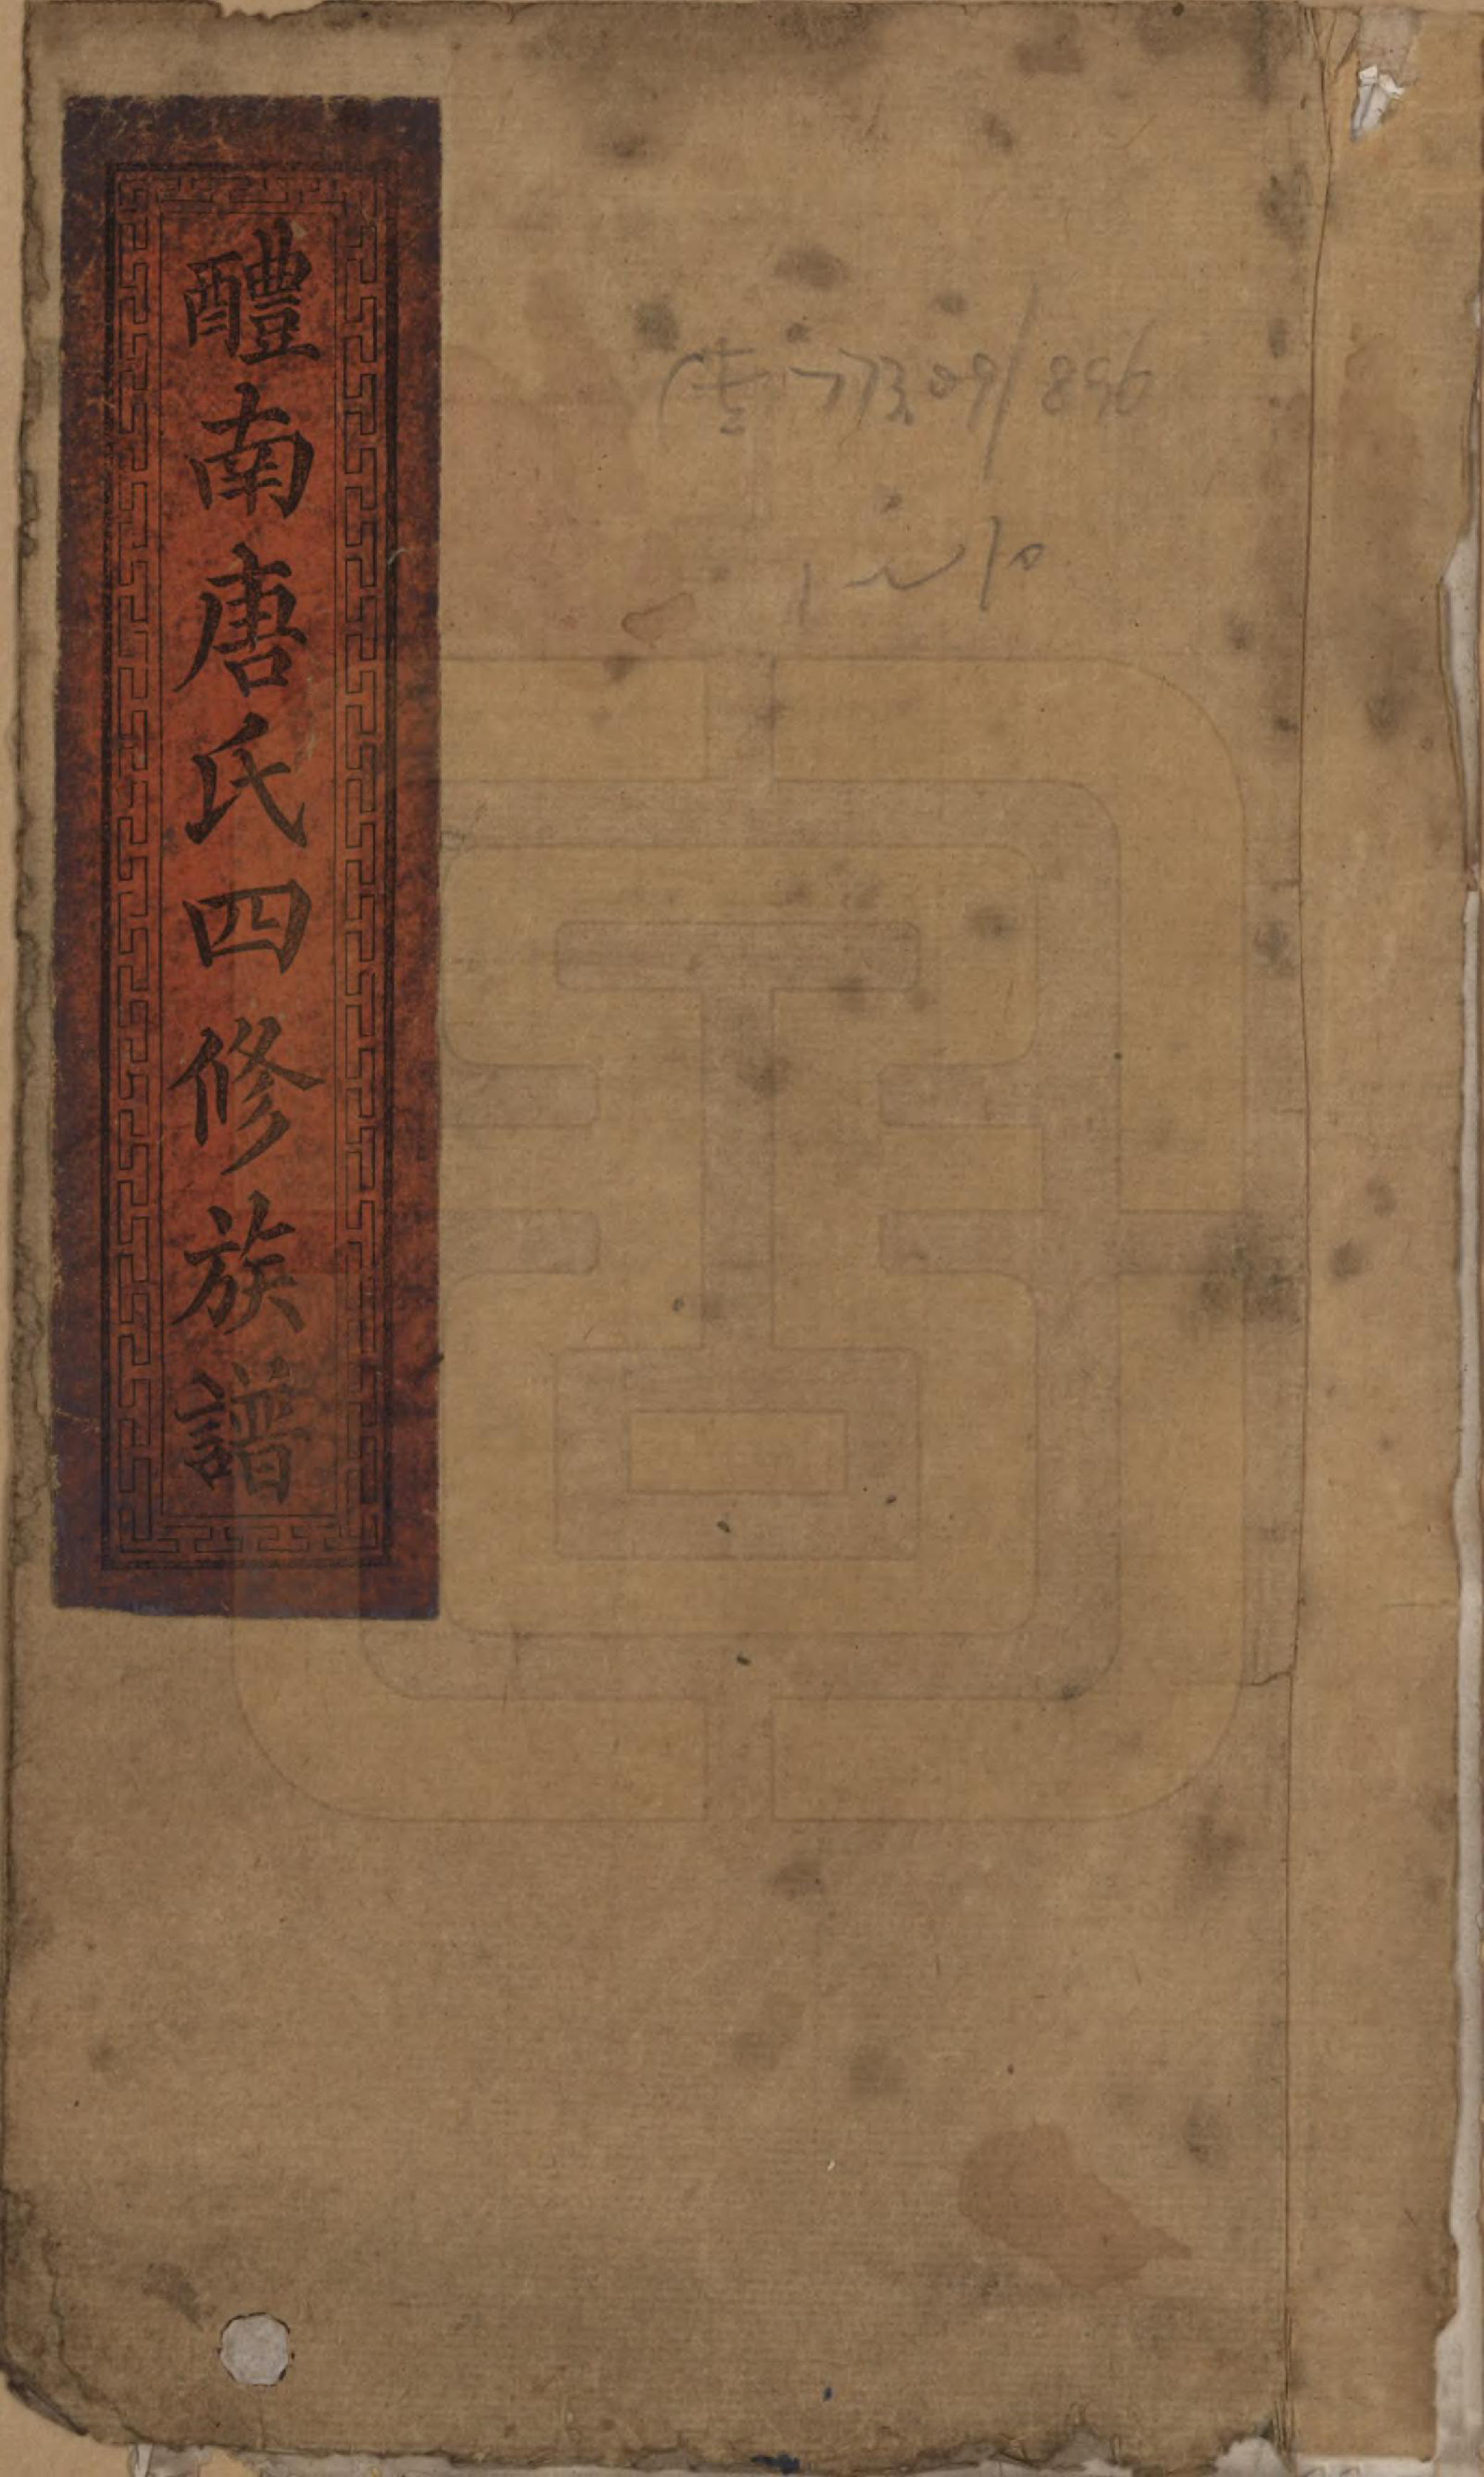 醴南唐氏四修族譜
傳773.09/896